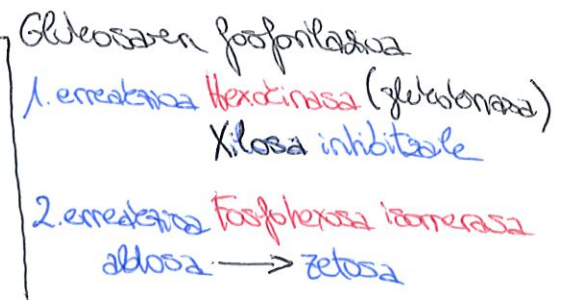 Glukosaren fosforilazioa
1. erreakzioa Hexokinasa (glukokinasa)
Xilosa inhibitzaile
2. erreakzioa Fosfohexosa isomerasa
aldosa → zetosa